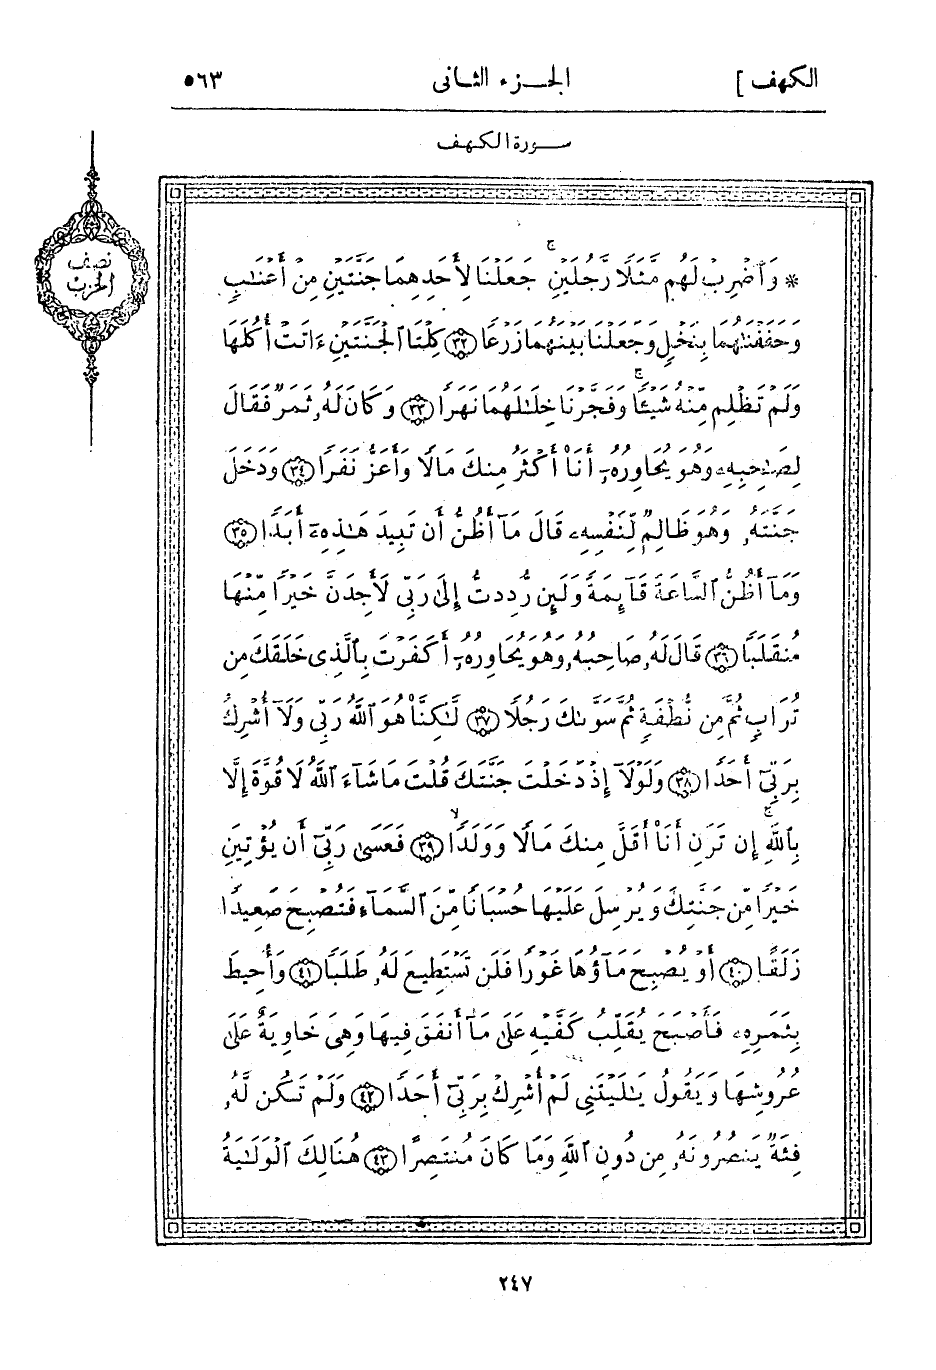 الكهف ] الجـزء الثانى ٥٦٣
سورة الكهف
نصف
الحزب
* وَٱضْرِبْ لَهُم مَّثَلًا رَّجُلَيْنِ ۚ جَعَلْنَا لِأَحَدِهِمَا جَنَّتَيْنِ مِنْ أَعْنَٰبٍ
وَحَفَفْنَٰهُمَا بِنَخْلٍ وَجَعَلْنَا بَيْنَهُمَا زَرْعًا ٣٢ كِلْتَا ٱلْجَنَّتَيْنِ ءَاتَتْ أُكُلَهَا
وَلَمْ تَظْلِم مِّنْهُ شَيْـًٔا ۚ وَفَجَّرْنَا خِلَٰلَهُمَا نَهَرًا ٣٣ وَكَانَ لَهُۥ ثَمَرٌ فَقَالَ
لِصَٰحِبِهِۦ وَهُوَ يُحَاوِرُهُۥٓ أَنَا۠ أَكْثَرُ مِنكَ مَالًا وَأَعَزُّ نَفَرًا ٣٤ وَدَخَلَ
جَنَّتَهُۥ وَهُوَ ظَالِمٌ لِّنَفْسِهِۦ قَالَ مَآ أَظُنُّ أَن تَبِيدَ هَٰذِهِۦٓ أَبَدًا ٣٥
وَمَآ أَظُنُّ ٱلسَّاعَةَ قَآئِمَةً وَلَئِن رُّدِدتُّ إِلَىٰ رَبِّى لَأَجِدَنَّ خَيْرًا مِّنْهَا
مُنقَلَبًا ٣٦ قَالَ لَهُۥ صَاحِبُهُۥ وَهُوَ يُحَاوِرُهُۥٓ أَكَفَرْتَ بِٱلَّذِى خَلَقَكَ مِن
تُرَابٍ ثُمَّ مِن نُّطْفَةٍ ثُمَّ سَوَّىٰكَ رَجُلًا ٣٧ لَّٰكِنَّا۠ هُوَ ٱللَّهُ رَبِّى وَلَآ أُشْرِكُ
بِرَبِّىٓ أَحَدًا ٣٨ وَلَوْلَآ إِذْ دَخَلْتَ جَنَّتَكَ قُلْتَ مَا شَآءَ ٱللَّهُ لَا قُوَّةَ إِلَّا
بِٱللَّهِ ۚ إِن تَرَنِ أَنَا۠ أَقَلَّ مِنكَ مَالًا وَوَلَدًا ۙ ٣٩ فَعَسَىٰ رَبِّىٓ أَن يُؤْتِيَنِ
خَيْرًا مِّن جَنَّتِكَ وَيُرْسِلَ عَلَيْهَا حُسْبَانًا مِّنَ ٱلسَّمَآءِ فَتُصْبِحَ صَعِيدًا
زَلَقًا ٤٠ أَوْ يُصْبِحَ مَآؤُهَا غَوْرًا فَلَن تَسْتَطِيعَ لَهُۥ طَلَبًا ٤١ وَأُحِيطَ
بِثَمَرِهِۦ فَأَصْبَحَ يُقَلِّبُ كَفَّيْهِ عَلَىٰ مَآ أَنفَقَ فِيهَا وَهِىَ خَاوِيَةٌ عَلَىٰ
عُرُوشِهَا وَيَقُولُ يَٰلَيْتَنِى لَمْ أُشْرِكْ بِرَبِّىٓ أَحَدًا ٤٢ وَلَمْ تَكُن لَّهُۥ
فِئَةٌ يَنصُرُونَهُۥ مِن دُونِ ٱللَّهِ وَمَا كَانَ مُنتَصِرًا ٤٣ هُنَالِكَ ٱلْوَلَٰيَةُ
٢٤٧